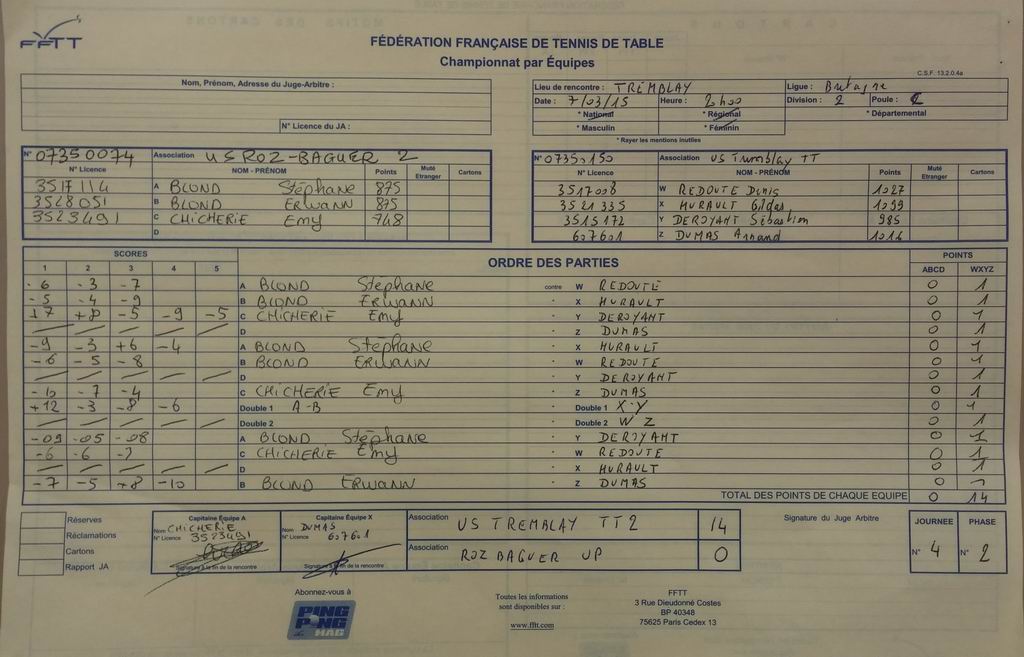 FFTT
FÉDÉRATION FRANÇAISE DE TENNIS DE TABLE
Championnat par Équipes
C.S.F. 13.2.0.4a
Nom, Prénom, Adresse du Juge-Arbitre :
N° Licence du JA :
Lieu de rencontre : TREMBLAY Ligue : Bretagne
Date : 7/03/15 Heure : 2h00 Division : 2 Poule :
* National * Régional * Départemental
* Masculin * Féminin
* Rayer les mentions inutiles
N° 07350074 Association US ROZ-BAGUER 2
N° Licence NOM - PRÉNOM Points Muté Etranger Cartons
3517114 A BLOND Stéphane 875
3528051 B BLOND ERWANN 875
3523491 C CHICHERIE Emy 748
D
N° 07350150 Association US Tremblay TT
N° Licence NOM - PRÉNOM Points Muté Etranger Cartons
3517008 W REDOUTE Denis 1027
3521335 X HURAULT Gildas 1099
3515172 Y DEROYANT Sébastien 985
607601 Z DUMAS Armand 1016
SCORES ORDRE DES PARTIES POINTS
1 2 3 4 5 ABCD WXYZ
-6 -3 -7 A BLOND Stéphane contre W REDOUTÉ 0 1
-5 -4 -9 B BLOND ERWANN X HURAULT 0 1
+7 +8 -5 -9 -5 C CHICHERIE Emy Y DEROYANT 0 1
D Z DUMAS 0 1
-9 -3 +6 -4 A BLOND Stéphane X HURAULT 0 1
-6 -5 -8 B BLOND ERWANN W REDOUTE 0 1
D Y DEROYANT 0 1
-10 -7 -4 C CHICHERIE Emy Z DUMAS 0 1
+12 -3 -8 -6 Double 1 A-B Double 1 X-Y 0 1
Double 2 Double 2 W Z 0 1
-09 -05 -08 A BLOND Stéphane Y DEROYANT 0 1
-6 -6 -7 C CHICHERIE Emy W REDOUTE 0 1
D X HURAULT 0 1
-7 -5 +8 -10 B BLOND ERWANN Z DUMAS 0 1
TOTAL DES POINTS DE CHAQUE EQUIPE 0 14
Réserves
Réclamations
Cartons
Rapport JA
Capitaine Équipe A
Nom CHICHERIE
N° Licence 3523491
Signature à la fin de la rencontre
Capitaine Équipe X
Nom DUMAS
N° Licence 607601
Signature à la fin de la rencontre
Association US TREMBLAY TT2 14
Association ROZ BAGUER UP 0
Signature du Juge Arbitre
JOURNEE PHASE
N° 4 N° 2
Abonnez-vous à
PING PONG MAG
Toutes les informations
sont disponibles sur :
www.fftt.com
FFTT
3 Rue Dieudonné Costes
BP 40348
75625 Paris Cedex 13